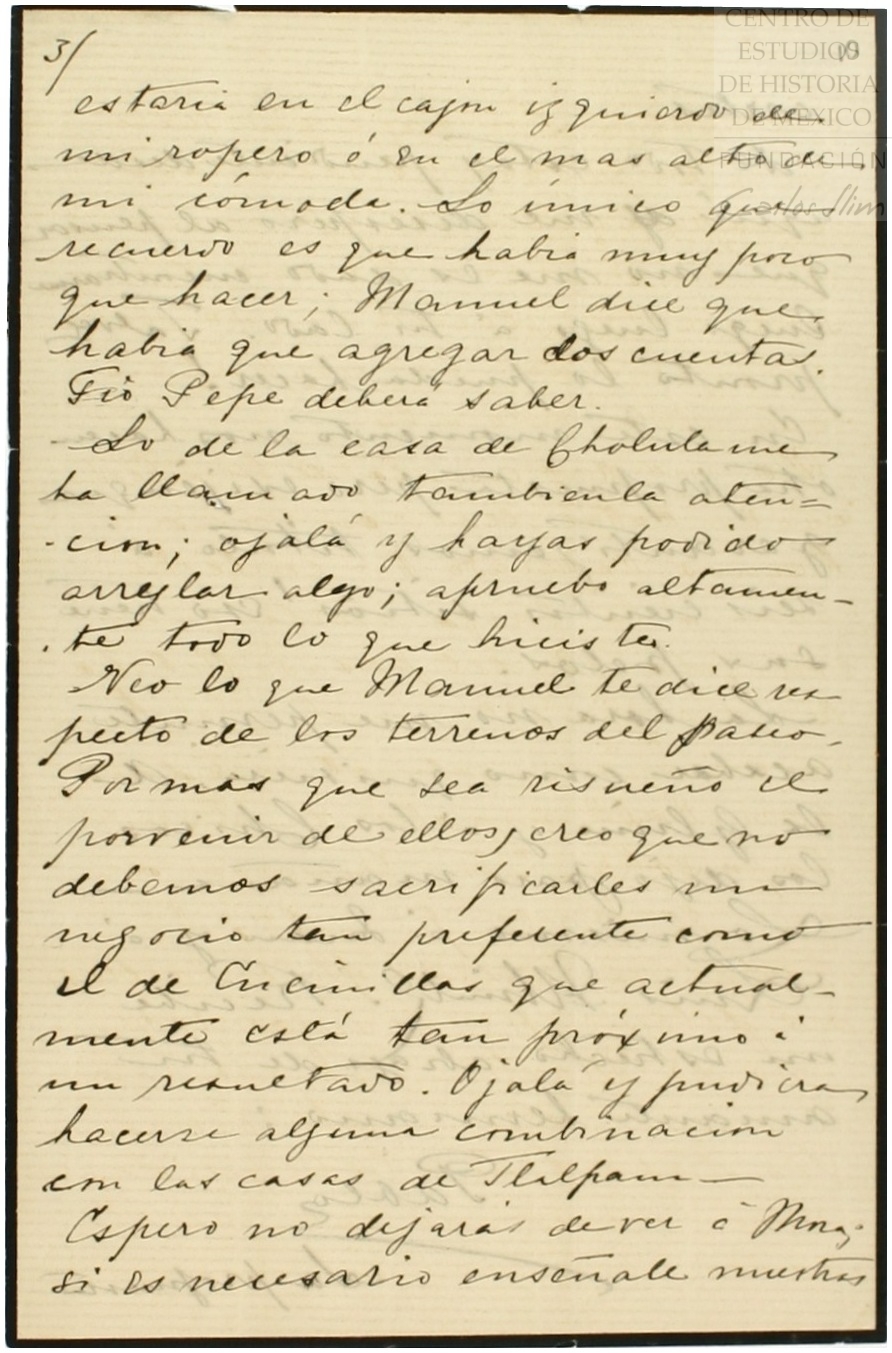 3/
19
CENTRO DE
ESTUDIOS
DE HISTORIA
DE MÉXICO
FUNDACIÓN
Carlos Slim
estaria en el cajon izquierdo de
mi ropero ó en el mas alto de
mi cómoda. Lo único que
recuerdo es que habia muy poco
que hacer; Manuel dice que
habia que agregar dos cuentas.
Tio Pepe deberá saber.
Lo de la casa de Cholula me
ha llamado tambien la aten=
-cion; ojalá y hayas podido
arreglar algo; apruebo altamen-
-te todo lo que hiciste.
Veo lo que Manuel te dice res
pecto de los terrenos del Paseo.
Por mas que sea risueño el
porvenir de ellos, creo que no
debemos sacrificarles un
negocio tan preferente como
el de Encinillas que actual-
mente está tan próximo á
un resultado. Ojalá y pudiera
hacerse alguna combinacion
con las casas de Tlalpam—
Espero no dejarás de ver á Mora;
si es necesario enséñale nuestras